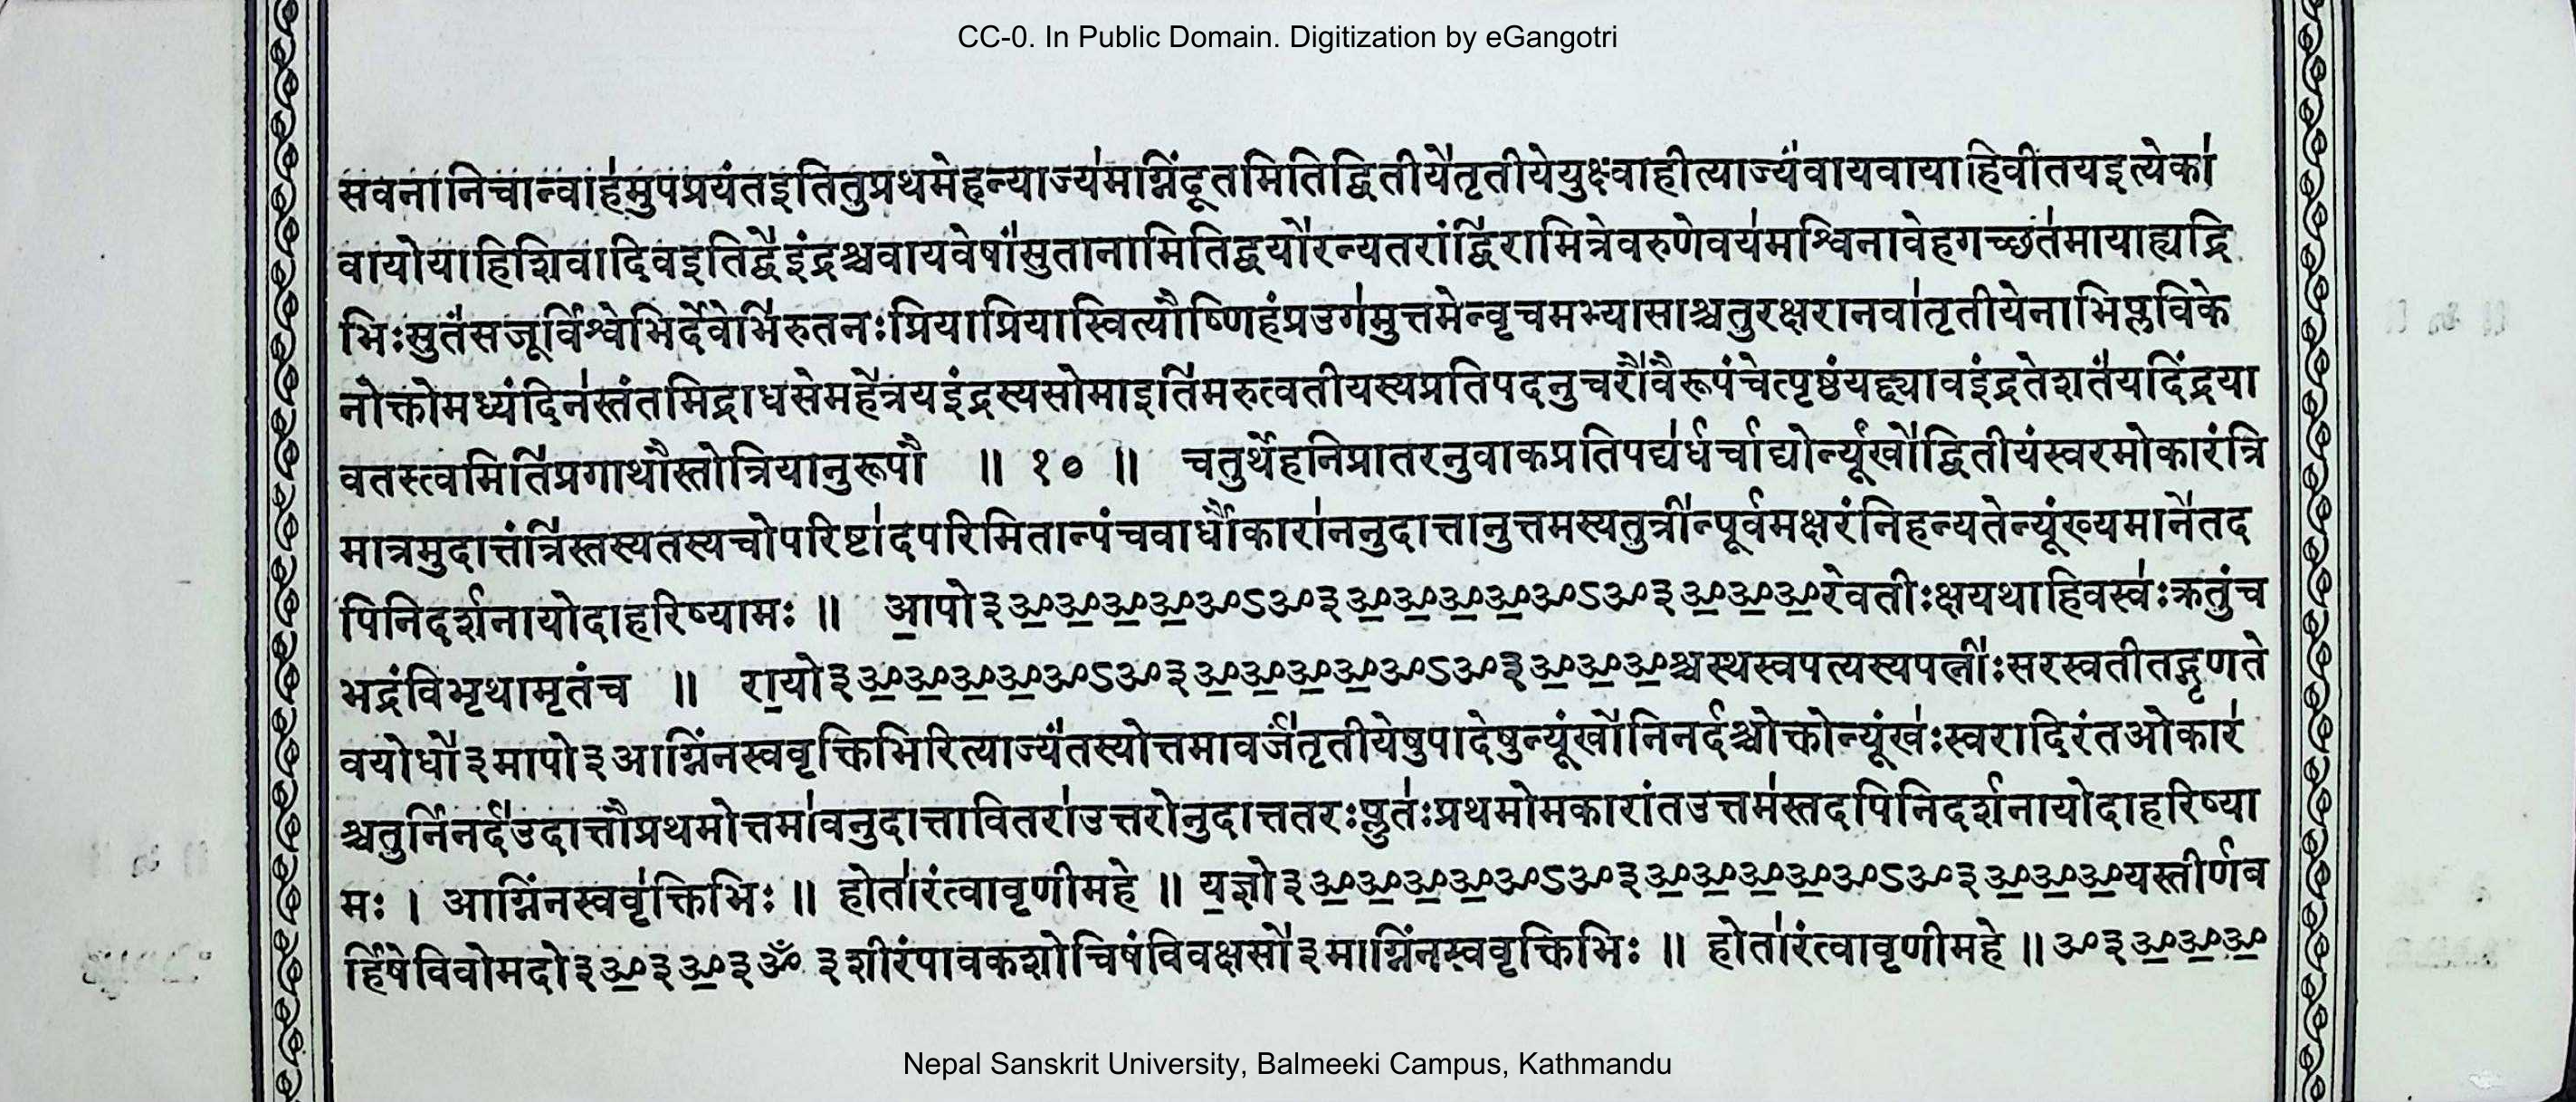 CC-0. In Public Domain. Digitization by eGangotri
सवनानिचान्वाह॑मुपप्रयंतइतितुप्रथमेहन्याज्य॑मग्निंदूतमितिद्वितीये॑तृतीयेयुक्ष्वाहीत्याज्यं॑वायवायाहिवीतयइत्येका॑
वायोयाहिशिवादिवइतिद्वे॑इंद्रश्चवायवेषां॑सुतानामितिद्वयो॑रन्यतरांद्वि॑रामित्रेवरुणेवय॑मश्विनावेहगच्छत॑मायाह्यद्रि
भिःसुतं॑सजूर्विश्वे॑भिर्देवेभि॑रुतनःप्रियाप्रियास्वित्यौष्णिहंप्रउग॑मुत्तमेन्वृचमभ्यासाश्चतुरक्षरानवा॑तृतीयेनाभिप्लविके
नोक्तोमध्यंदिन॑स्तंतमिद्राधसेमहे॑त्रयइंद्रस्यसोमाइति॑मरुत्वतीयस्यप्रतिपदनुचरौ॑वैरूपंचेत्पृष्ठंयद्द्यावइंद्रतेशतं॑यदिंद्रया
वतस्त्वमिति॑प्रगाथौस्तोत्रियानुरूपौ॑ ॥ १० ॥ चतुर्थे॑हनिप्रातरनुवाकप्रतिपद्य॑र्धर्चाद्योर्न्यूं॑खो॑द्वितीयंस्वरमोकारंत्रि
मात्रमुदात्तंत्रि॑स्तस्यतस्यचोपरिष्टा॑दपरिमितान्पंचवार्धौ॑कारा॑ननुदात्तानुत्तमस्यतुत्री॑न्पूर्वमक्षरंनिहन्यतेन्यूंख्यमाने॑तद
पिनिदर्शनायोदाहरिष्यामः ॥ आ॒पो३ॐ॒ॐ॒ॐ॒ॐ॒ॐऽॐ३ॐ॒ॐ॒ॐ॒ॐ॒ॐऽॐ३ॐ॒ॐ॒ॐ॒रेवतीःक्षयथाहिवस्व॑ःक्रतुंच
भद्रंविभृथामृतंच ॥ रा॒यो३ॐ॒ॐ॒ॐ॒ॐ॒ॐऽॐ३ॐ॒ॐ॒ॐ॒ॐ॒ॐऽॐ३ॐ॒ॐ॒ॐ॒श्चस्थस्वपत्यस्यपत्नी॑ःसरस्वतीतद्गृणते
वयोधो॑३मापो३आग्निंनस्ववृक्तिभिरित्याज्यं॑तस्योत्तमावर्जं॑तृतीयेषुपादेषुन्यूंखो॑निनर्दश्चोक्तोन्यूंख॑ःस्वरादिरंतओकार॑
श्चतुर्निनर्द॑उदात्तौप्रथमोत्तमा॑वनुदात्तावितरा॑उत्तरोनुदात्ततरःप्लुत॑ःप्रथमोमकारांतउत्तम॑स्तदपिनिदर्शनायोदाहरिष्या
मः । आग्निंनस्ववृ॑क्तिभिः ॥ होता॑रंत्वावृणीमहे ॥ य॒ज्ञो३ॐ॒ॐ॒ॐ॒ॐ॒ॐऽॐ३ॐ॒ॐ॒ॐ॒ॐ॒ॐऽॐ३ॐ॒ॐ॒ॐ॒यस्तीर्णब
र्हिषेविवोमदो३ॐ॒३ॐ॒३ॐ ३शीरंपावकशोचिषंविवक्षसो॑३माग्निंनस्ववृक्तिभिः ॥ होता॑रंत्वावृणीमहे ॥ॐ३ॐ॒ॐ॒ॐ॒
Nepal Sanskrit University, Balmeeki Campus, Kathmandu